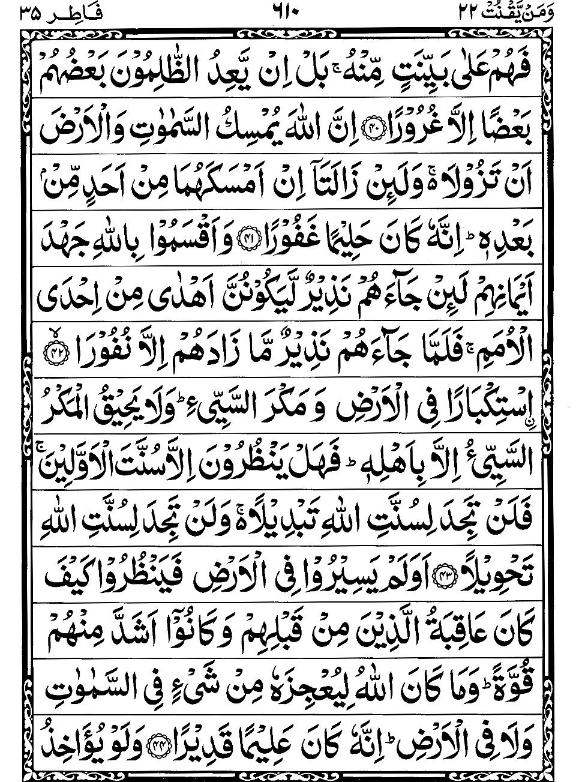 وَمَنْ يَّقْنُتْ ٢٢ ٦١٠ فَاطِر ٣٥
فَهُمْ عَلٰى بَيِّنَتٍ مِّنْهُ ۚ بَلْ اِنْ يَّعِدُ الظّٰلِمُوْنَ بَعْضُهُمْ
بَعْضًا اِلَّا غُرُوْرًا ﴿٤٠﴾ اِنَّ اللّٰهَ يُمْسِكُ السَّمٰوٰتِ وَالْاَرْضَ
اَنْ تَزُوْلَا ۚ۬ وَلَئِنْ زَالَتَاۤ اِنْ اَمْسَكَهُمَا مِنْ اَحَدٍ مِّنْۢ
بَعْدِهٖ ؕ اِنَّهٗ كَانَ حَلِيْمًا غَفُوْرًا ﴿٤١﴾ وَاَقْسَمُوْا بِاللّٰهِ جَهْدَ
اَيْمَانِهِمْ لَئِنْ جَآءَهُمْ نَذِيْرٌ لَّيَكُوْنُنَّ اَهْدٰى مِنْ اِحْدَى
الْاُمَمِ ۚ فَلَمَّا جَآءَهُمْ نَذِيْرٌ مَّا زَادَهُمْ اِلَّا نُفُوْرًا ﴿٤٢﴾ۙ
اۨسْتِكْبَارًا فِى الْاَرْضِ وَمَكْرَ السَّيِّئِ ؕ وَلَا يَحِيْقُ الْمَكْرُ
السَّيِّئُ اِلَّا بِاَهْلِهٖ ؕ فَهَلْ يَنْظُرُوْنَ اِلَّا سُنَّتَ الْاَوَّلِيْنَ ۚ
فَلَنْ تَجِدَ لِسُنَّتِ اللّٰهِ تَبْدِيْلًا ۚ۬ وَلَنْ تَجِدَ لِسُنَّتِ اللّٰهِ
تَحْوِيْلًا ﴿٤٣﴾ اَوَلَمْ يَسِيْرُوْا فِى الْاَرْضِ فَيَنْظُرُوْا كَيْفَ
كَانَ عَاقِبَةُ الَّذِيْنَ مِنْ قَبْلِهِمْ وَكَانُوْۤا اَشَدَّ مِنْهُمْ
قُوَّةً ؕ وَمَا كَانَ اللّٰهُ لِيُعْجِزَهٗ مِنْ شَىْءٍ فِى السَّمٰوٰتِ
وَلَا فِى الْاَرْضِ ؕ اِنَّهٗ كَانَ عَلِيْمًا قَدِيْرًا ﴿٤٤﴾ وَلَوْ يُؤَاخِذُ